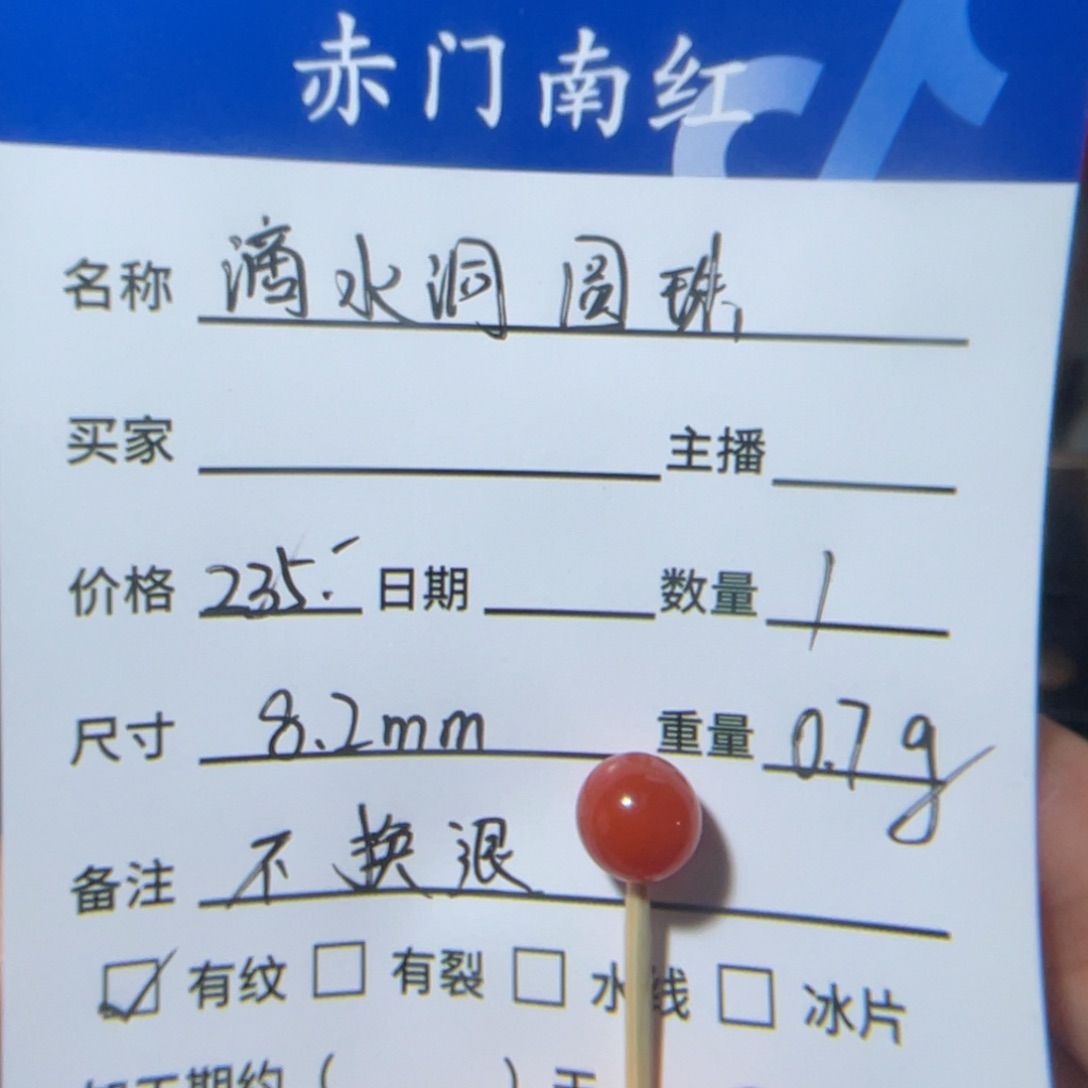 赤门南红
名称 滴水洞 圆珠
买家 主播
价格 235.- 日期 数量 1
尺寸 8.2mm 重量 0.7g
备注 不换退
☑ 有纹 □ 有裂 □ 水线 □ 冰片
加工期约 ( ) 天